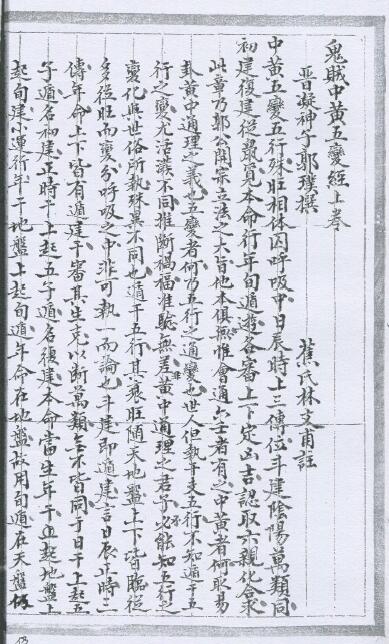 鬼賊中黃五變經上卷
晉凝神子郭璞撰
蕉氏林文甫註
中黃五變五行殊旺相休囚呼吸中日辰時上三傳位斗建陰陽萬類同
初建復建從最見本命行年旬遁遊各番上下定凶吉認取六親化合求
此章乃郭公開宗立法之大旨他本俱無惟會通六壬者有之中黃者何取易
卦黃中通理之義也五變者何乃五行之通變也世人但執干支五行不知遁干五
行之變尤活潑不同推斷禍福准驗無差非黃中通理之君子不能知五行之
變化與世俗所執殊異不同也遁干五行其衰旺隨天地盤上下皆臨從
多從旺而變分呼吸之中非可執一而論也斗建即遁建言日辰正時三
傳年命上下皆有遁建干審其生克以斷萬類無不皆同于日干上起五
子遁名初建正時干上起五子遁名復建本命當生年干並起地盤上
起旬建小運行年干地盤上起旬遁年命在地盤故用旬遁在天盤仍
仍